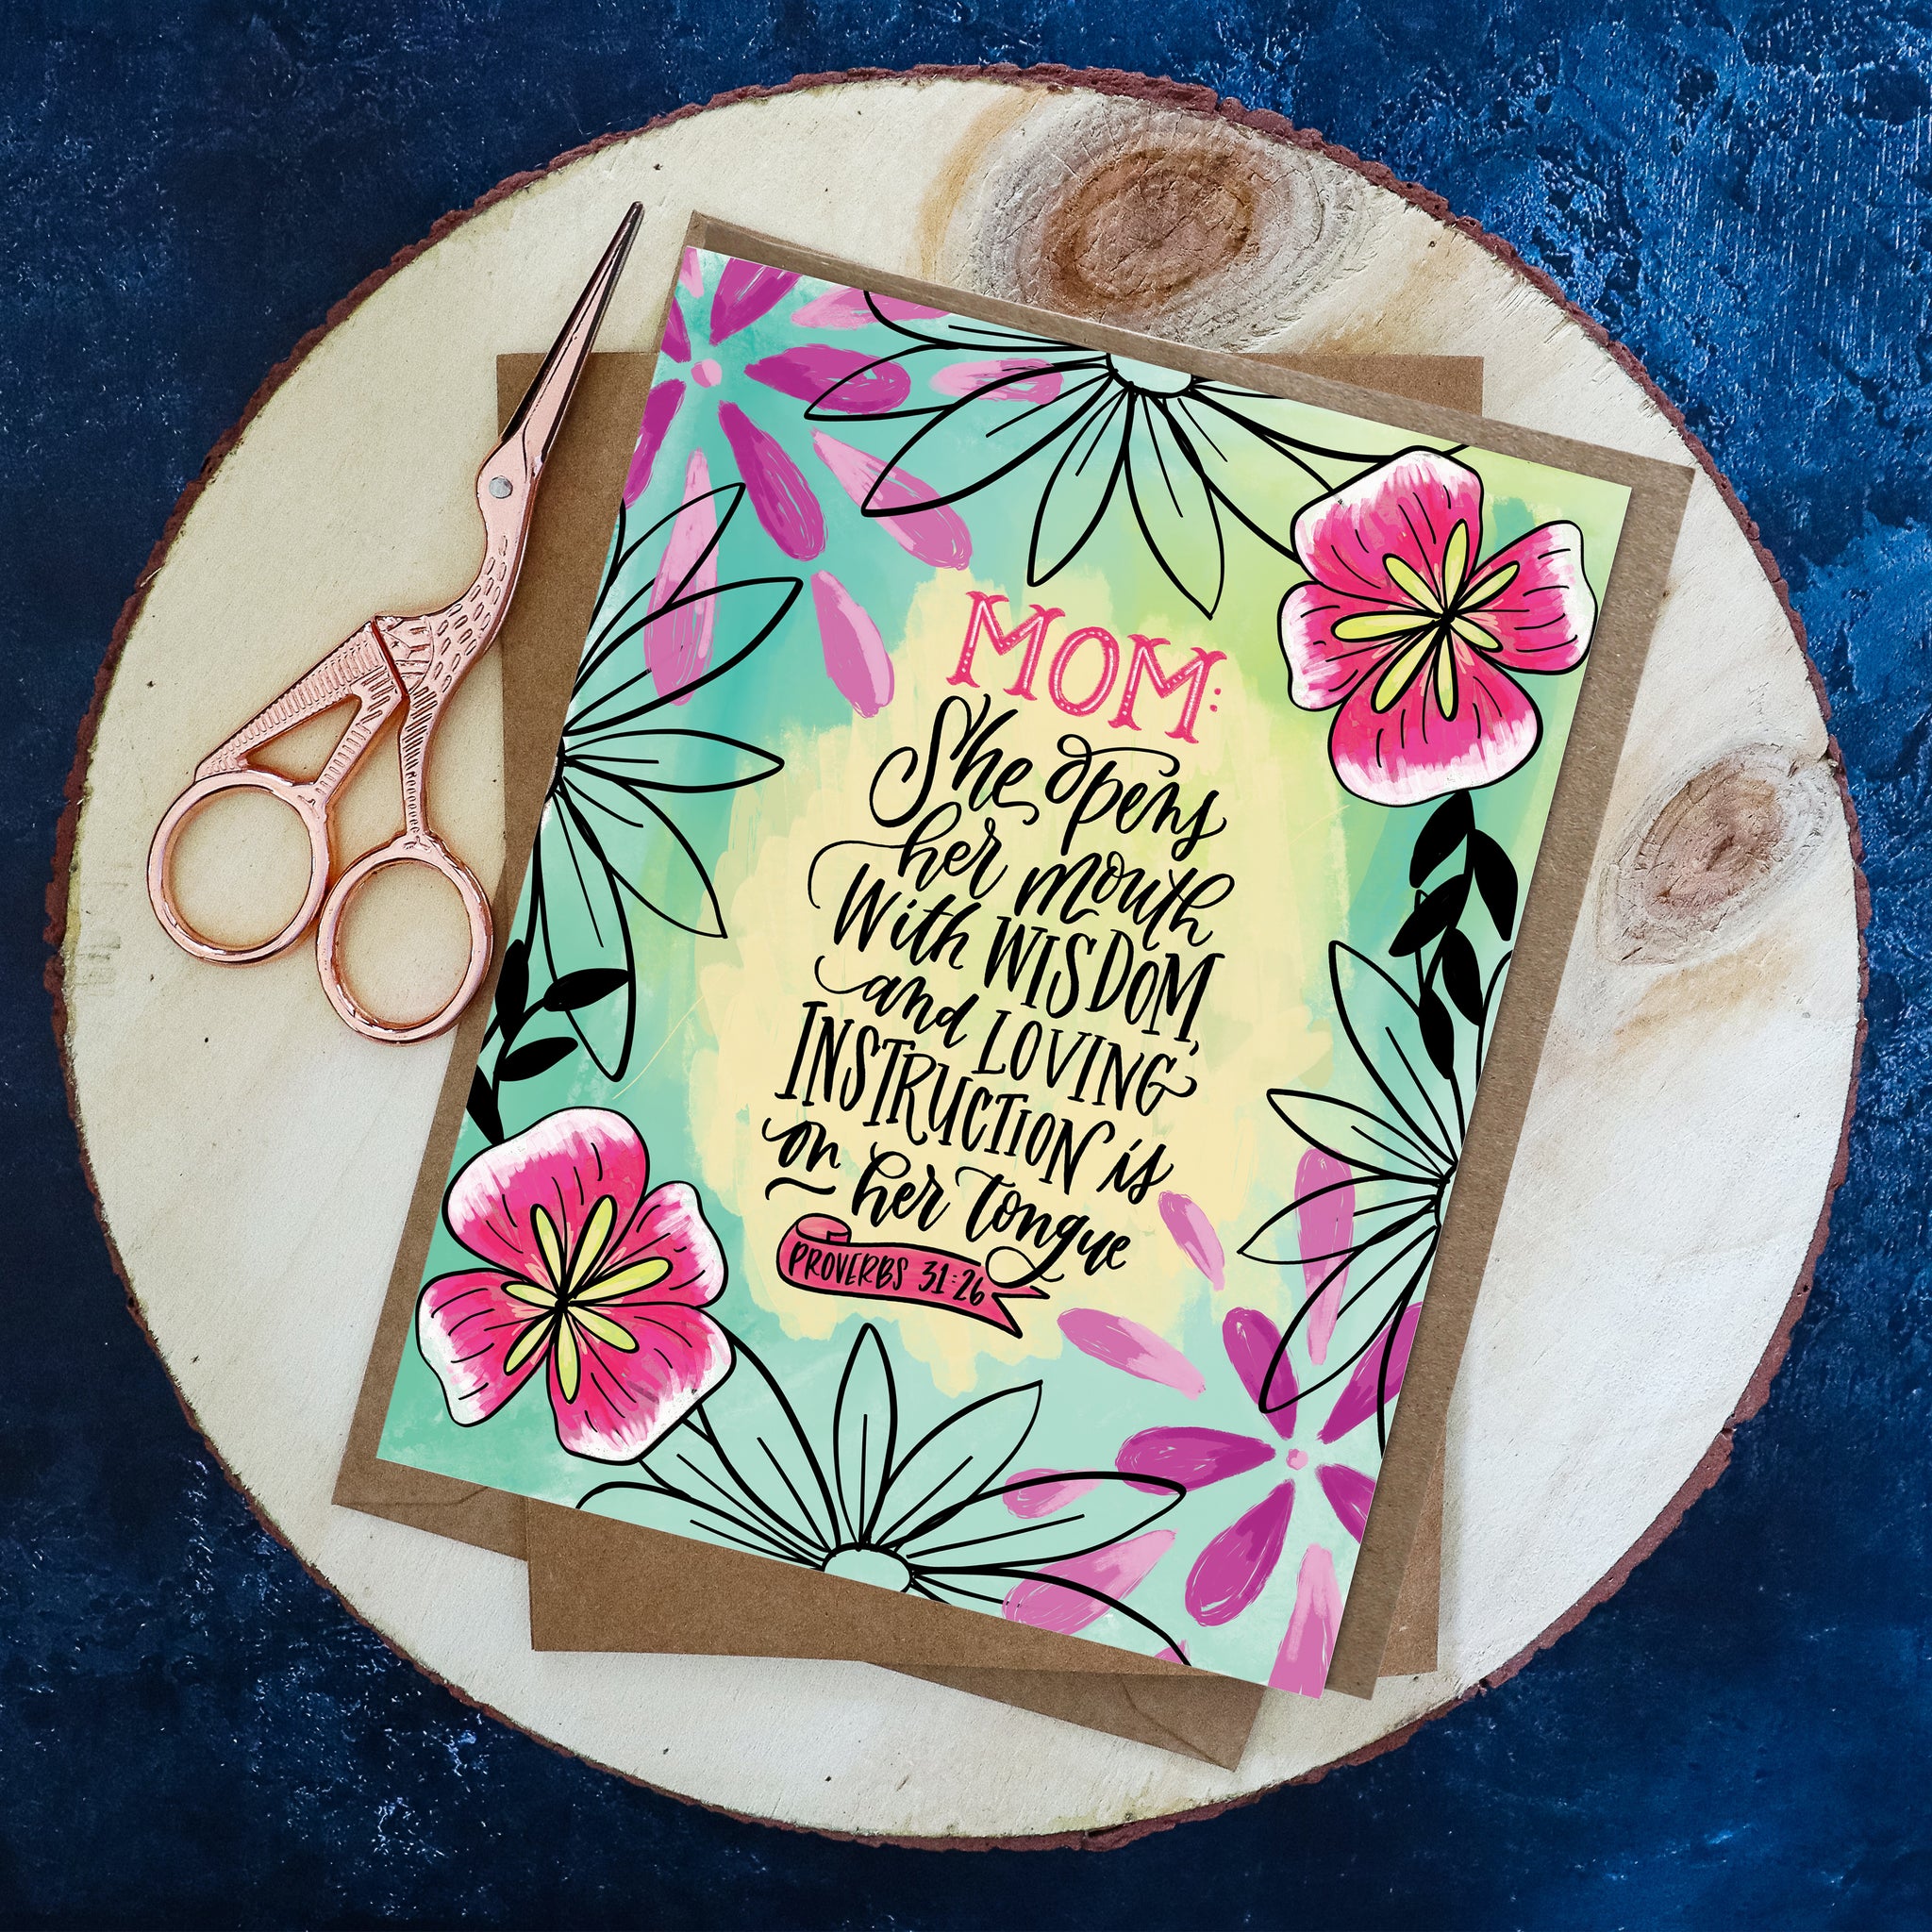 MOM:
She opens
her mouth
With WISDOM,
and LOVING
INSTRUCTION is
on her tongue
PROVERBS 31:26